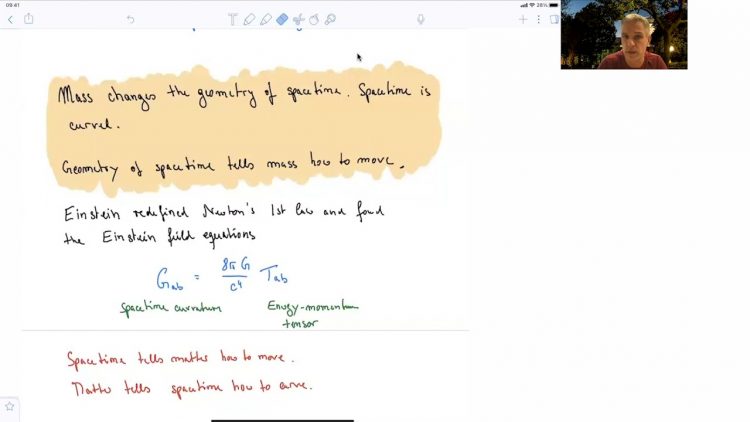 09:41
28%
Mass changes the geometry of spacetime. Spacetime is
curved.
Geometry of spacetime tells mass how to move.
Einstein redefined Newton's 1st law and found
the Einstein field equations
G_ab = 8πG/c⁴ T_ab
spacetime curvature Energy-momentum
tensor
Spacetime tells matter how to move.
Matter tells spacetime how to curve.